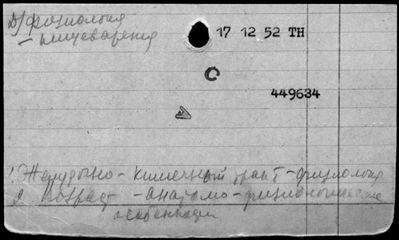 Д/физиология
17 12 52 TH
– пищеварения
449634
1. Желудочно-кишечный тракт – физиология
2. Возраст – анатомо-физиологические
особенности